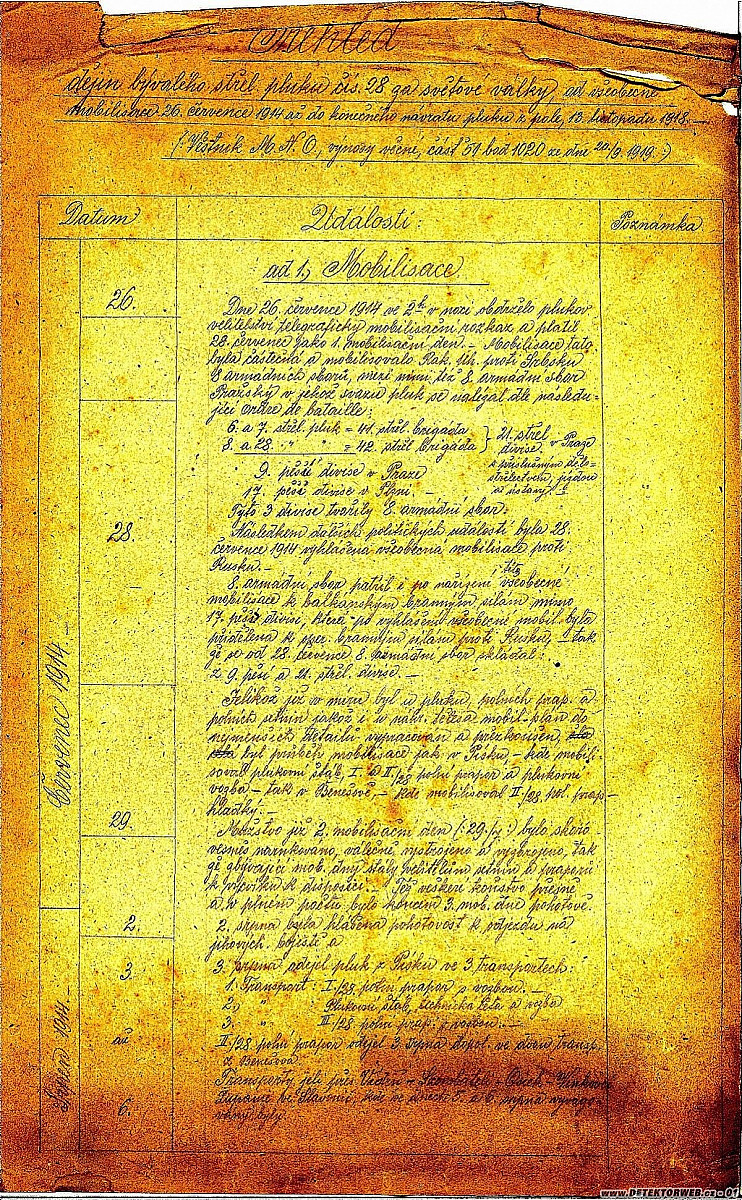 Přehled
dějin bývalého střel. pluku čís. 28 za světové války, od všeobecné
mobilisace 26. července 1914 až do konečného návratu pluku z pole, 13. listopadu 1918. —
(: Věstník M. N. O., výnosy věcné, část 51 bod 1020 ze dne 20/9. 1919. :)
Datum
Události:
Poznámka
ad 1, Mobilisace.
26.
Dne 26. července 1914 ve 2h v noci obdrželo plukov.
velitelství telegrafický mobilisační rozkaz a platil
28. červenec jako 1. mobilisační den. — Mobilisace tato
byla částečná a mobilisovalo Rak. Uh. proti Srbsku
8 armádních sborů, mezi nimi též 8. armádní sbor
Pražský v jehož svazu pluk se nalézal dle následu-
jící ordre de bataille:
6. a 7. střel. pluk = 41. střel. brigáda
8. a 28. " " = 42. střel. brigáda
21. střel.
divise. v Praze
s příslušným dělo-
střelectvem, jízdou
a ústavy. —
9. pěší divise v Praze
17. pěší divise v Plzni. —
Tyto 3 divise tvořily 8. armádní sbor.
28.
Následkem dalších politických událostí byla 28.
července 1914 vyhlášena všeobecná mobilisace proti
Rusku. —
8. armádní sbor patřil i po nařízení této všeobecné
mobilisace k balkánským branným silám mimo
17. pěší divisi, která po vyhlášení všeobecné mobil. byla
přidělena k branným silám proti Rusku, — tak
že se od 28. července 8. armádní sbor skládal:
z 9. pěší a 21. střel. divise. —
Jelikož již v míru byl u pluku, polních prap. a
polních setnin jakož i u náhr. tělesa mobil. plán do
nejmenších detailů vypracován a přezkoušen,
byl průběh mobilisace jak v Písku — kde mobili-
soval plukovní štáb, I. a III/28 polní prapor a plukovní
vozba — tak v Benešově, — kde mobilisoval II/28. pol. prap. —
hladký. —
29.
Mužstvo již 2. mobilisační den (: 29./7. :) bylo skoro
vesměs narukováno, válečně vystrojeno a vyzbrojeno, tak
že zbývající mob. dny stály velitelům setnin a praporů
k výcviku k disposici. — Též veškeré koňstvo přejmé
a v plném počtu bylo koncem 3. mob. dne pohotově.
2.
2. srpna byla hlášena pohotovost k odjezdu na
jihových. bojiště a
3.
3. srpna odejel pluk z Písku ve 3 transportech:
1. Transport: I/28 polní prapor s vozbou. —
2. " Plukovní štáb, technická četa a vozba
3. " III/28. polní prap. s vozbou. —
až
II/28 polní prapor odejel 3. srpna dopol. ve dvou transp.
z Benešova.
Transporty jeli přes Vídeň — Szombateli — Osek — Vinkovce
Županje ve Slavonii, kde ve dnech 5. a 6. srpna vyvago-
vány byly.
6.
Červenec 1914. —
Srpen 1914. —
www.DETEKTORWEB.cz-01